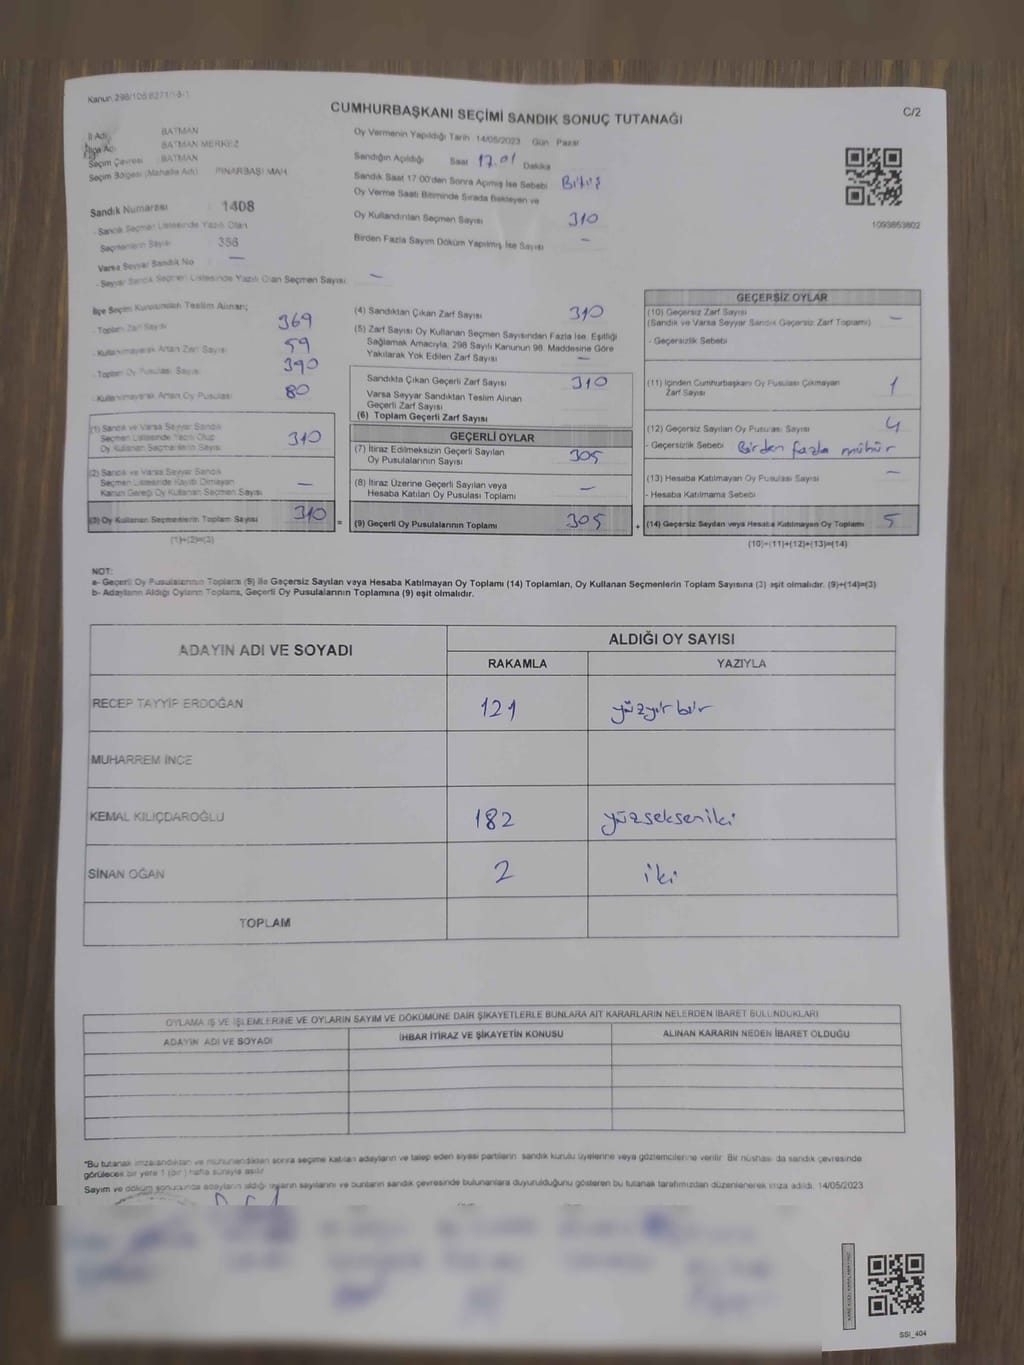 Kanun: 298/105 6271/18/1
CUMHURBAŞKANI SEÇİMİ SANDIK SONUÇ TUTANAĞI
C/2
İl Adı BATMAN
İlçe Adı BATMAN MERKEZ
Seçim Çevresi BATMAN
Seçim Bölgesi (Mahalle Adı) PINARBAŞI MAH.
Sandık Numarası 1408
- Sandık Seçmen Listesinde Yazılı Olan
Seçmenlerin Sayısı 356
Varsa Seyyar Sandık No —
- Seyyar Sandık Seçmen Listesinde Yazılı Olan Seçmen Sayısı —
Oy Vermenin Yapıldığı Tarih 14/05/2023 Gün Pazar
Sandığın Açıldığı Saat 17.01 Dakika
Sandık Saat 17:00'den Sonra Açılmış İse Sebebi Bitiş
Oy Verme Saati Bitiminde Sırada Bekleyen ve
Oy Kullandırılan Seçmen Sayısı 310
Birden Fazla Sayım Döküm Yapılmış İse Sayısı —
1093853802
İlçe Seçim Kurulundan Teslim Alınan;
- Toplam Zarf Sayısı 369
- Kullanılmayarak Artan Zarf Sayısı 59
- Toplam Oy Pusulası Sayısı 390
- Kullanılmayarak Artan Oy Pusulası 80
(1) Sandık ve Varsa Seyyar Sandık
Seçmen Listesinde Yazılı Olup
Oy Kullanan Seçmenlerin Sayısı 310
(2) Sandık ve Varsa Seyyar Sandık
Seçmen Listesinde Kaydı Olmayan
Kanun Gereği Oy Kullanan Seçmen Sayısı —
(3) Oy Kullanan Seçmenlerin Toplam Sayısı 310 =
(1)+(2)=(3)
(4) Sandıktan Çıkan Zarf Sayısı 310
(5) Zarf Sayısı Oy Kullanan Seçmen Sayısından Fazla İse, Eşitliği
Sağlamak Amacıyla, 298 Sayılı Kanunun 98. Maddesine Göre
Yakılarak Yok Edilen Zarf Sayısı —
Sandıkta Çıkan Geçerli Zarf Sayısı 310
Varsa Seyyar Sandıktan Teslim Alınan
Geçerli Zarf Sayısı
(6) Toplam Geçerli Zarf Sayısı
GEÇERLİ OYLAR
(7) İtiraz Edilmeksizin Geçerli Sayılan
Oy Pusulalarının Sayısı 305
(8) İtiraz Üzerine Geçerli Sayılan veya
Hesaba Katılan Oy Pusulası Toplamı —
(9) Geçerli Oy Pusulalarının Toplamı 305 +
GEÇERSİZ OYLAR
(10) Geçersiz Zarf Sayısı —
(Sandık ve Varsa Seyyar Sandık Geçersiz Zarf Toplamı)
- Geçersizlik Sebebi
(11) İçinden Cumhurbaşkanı Oy Pusulası Çıkmayan
Zarf Sayısı 1
(12) Geçersiz Sayılan Oy Pusulası Sayısı 4
- Geçersizlik Sebebi Birden fazla mühür
(13) Hesaba Katılmayan Oy Pusulası Sayısı —
- Hesaba Katılmama Sebebi
(14) Geçersiz Sayılan veya Hesaba Katılmayan Oy Toplamı 5
(10)+(11)+(12)+(13)=(14)
NOT:
a- Geçerli Oy Pusulalarının Toplamı (9) ile Geçersiz Sayılan veya Hesaba Katılmayan Oy Toplamı (14) Toplamları, Oy Kullanan Seçmenlerin Toplam Sayısına (3) eşit olmalıdır. (9)+(14)=(3)
b- Adayların Aldığı Oyların Toplamı, Geçerli Oy Pusulalarının Toplamına (9) eşit olmalıdır.
ADAYIN ADI VE SOYADI
ALDIĞI OY SAYISI
RAKAMLA YAZIYLA
RECEP TAYYİP ERDOĞAN 121 yüzyirbir
MUHARREM İNCE
KEMAL KILIÇDAROĞLU 182 yüzsekseniki
SİNAN OĞAN 2 iki
TOPLAM
OYLAMA İŞ VE İŞLEMLERİNE VE OYLARIN SAYIM VE DÖKÜMÜNE DAİR ŞİKAYETLERLE BUNLARA AİT KARARLARIN NELERDEN İBARET BULUNDUKLARI
ADAYIN ADI VE SOYADI İHBAR İTİRAZ VE ŞİKAYETİN KONUSU ALINAN KARARIN NEDEN İBARET OLDUĞU
*Bu tutanak imzalandıktan ve mühürlendikten sonra seçime katılan adayların ve talep eden siyasi partilerin sandık kurulu üyelerine veya gözlemcilerine verilir. Bir nüshası da sandık çevresinde
görülecek bir yere 1 (bir) hafta süreyle asılır.
Sayım ve döküm sonucunda adayların aldığı oyların sayılarını ve bunların sandık çevresinde bulunanlara duyurulduğunu gösteren bu tutanak tarafımızdan düzenlenerek imza edildi. 14/05/2023
SSI_404